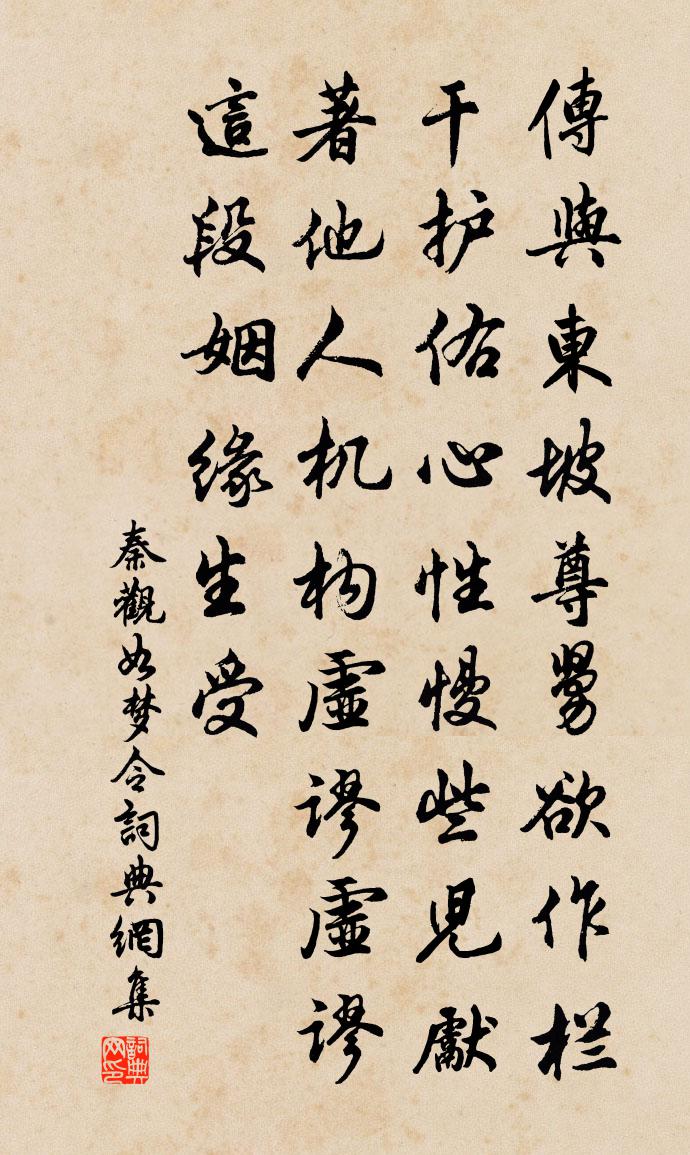 傳與東坡尊舅欲作栏
干护佑心性慢些兒獻
著他人机构虛謬虛謬
這段姻緣生受
秦觀如梦令詞典網集
詞典
网印